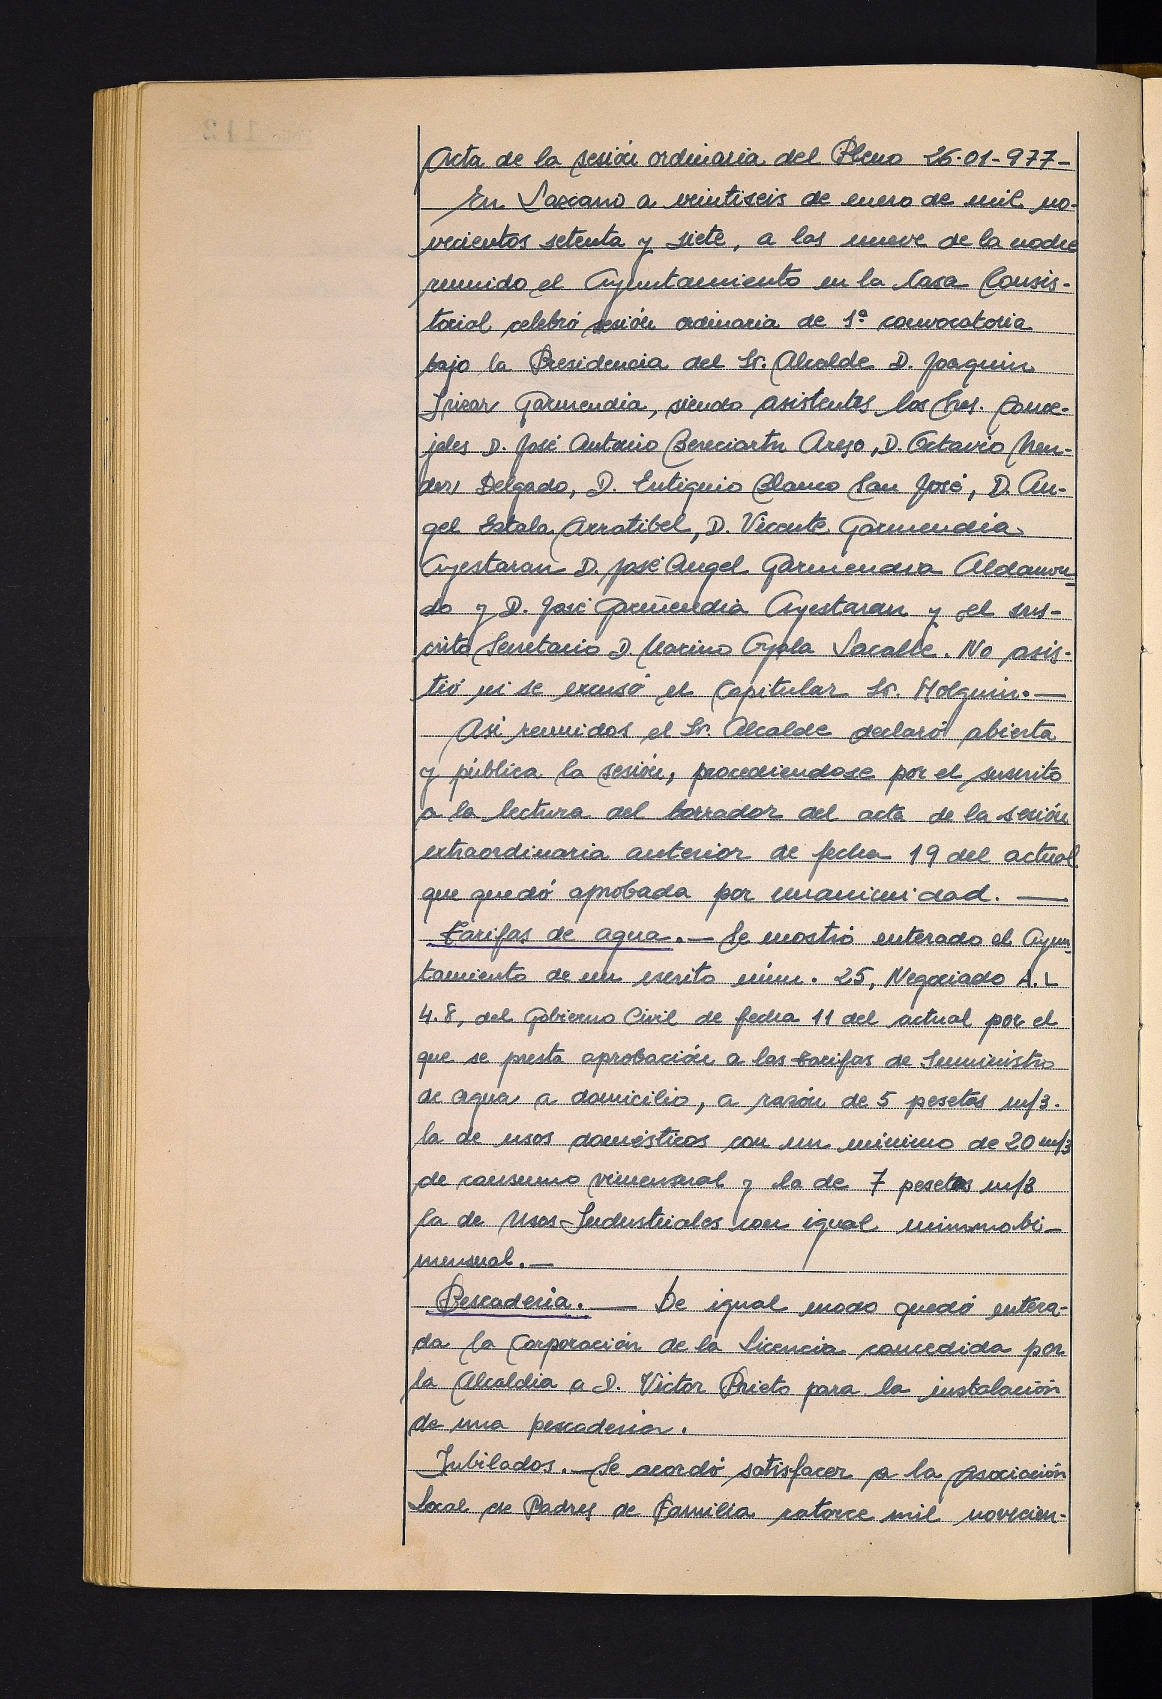 Acta de la sesión ordinaria del Pleno 26-01-977-
En Lazcano a veintiseis de enero de mil no-
vecientos setenta y siete, a las nueve de la noche
reunido el Ayuntamiento en la Casa Consis-
torial celebró sesión ordinaria de 1ª convocatoria
bajo la Presidencia del Sr. Alcalde D. Joaquin
Irizar Garmendia, siendo asistentes los Sres. Conce-
jales D. José Antonio Bereciartu Areso, D. Octavio Men-
dez Delgado, D. Eutiquio Blanco San José, D. An-
gel Estala Arratibel, D. Vicente Garmendia
Ayestaran D. José Angel Garmendia Aldamon-
do y D. José Garmendia Ayestaran y el sus-
crito Secretario D. Marino Ayala Lacalle. No asis-
tió ni se excusó el Capitular Sr. Holguin. —
Asi reunidos el Sr. Alcalde declaró abierta
y pública la sesión, procediendose por el suscrito
a la lectura del borrador del acta de la sesión
extraordinaria anterior de fecha 19 del actual
que quedó aprobada por unanimidad. —
Tarifas de agua. — Se mostró enterado el Ayun-
tamiento de un escrito núm. 25, Negociado A.L
4.8, del Gobierno Civil de fecha 11 del actual por el
que se presta aprobación a las tarifas de Suministro
de agua a domicilio, a razón de 5 pesetas m/3.
la de usos domésticos con un mínimo de 20 m/3
de consumo vimensual y la de 7 pesetas m/3
la de Usos-Industriales con igual mínimo bi-
mensual. —
Pescaderia. — De igual modo quedó entera-
da la Corporación de la Licencia concedida por
la Alcaldia a D. Victor Prieto para la instalación
de una pescaderia.
Jubilados. — Se acordó satisfacer a la Asociación
Local de Padres de Familia catorce mil novecien-